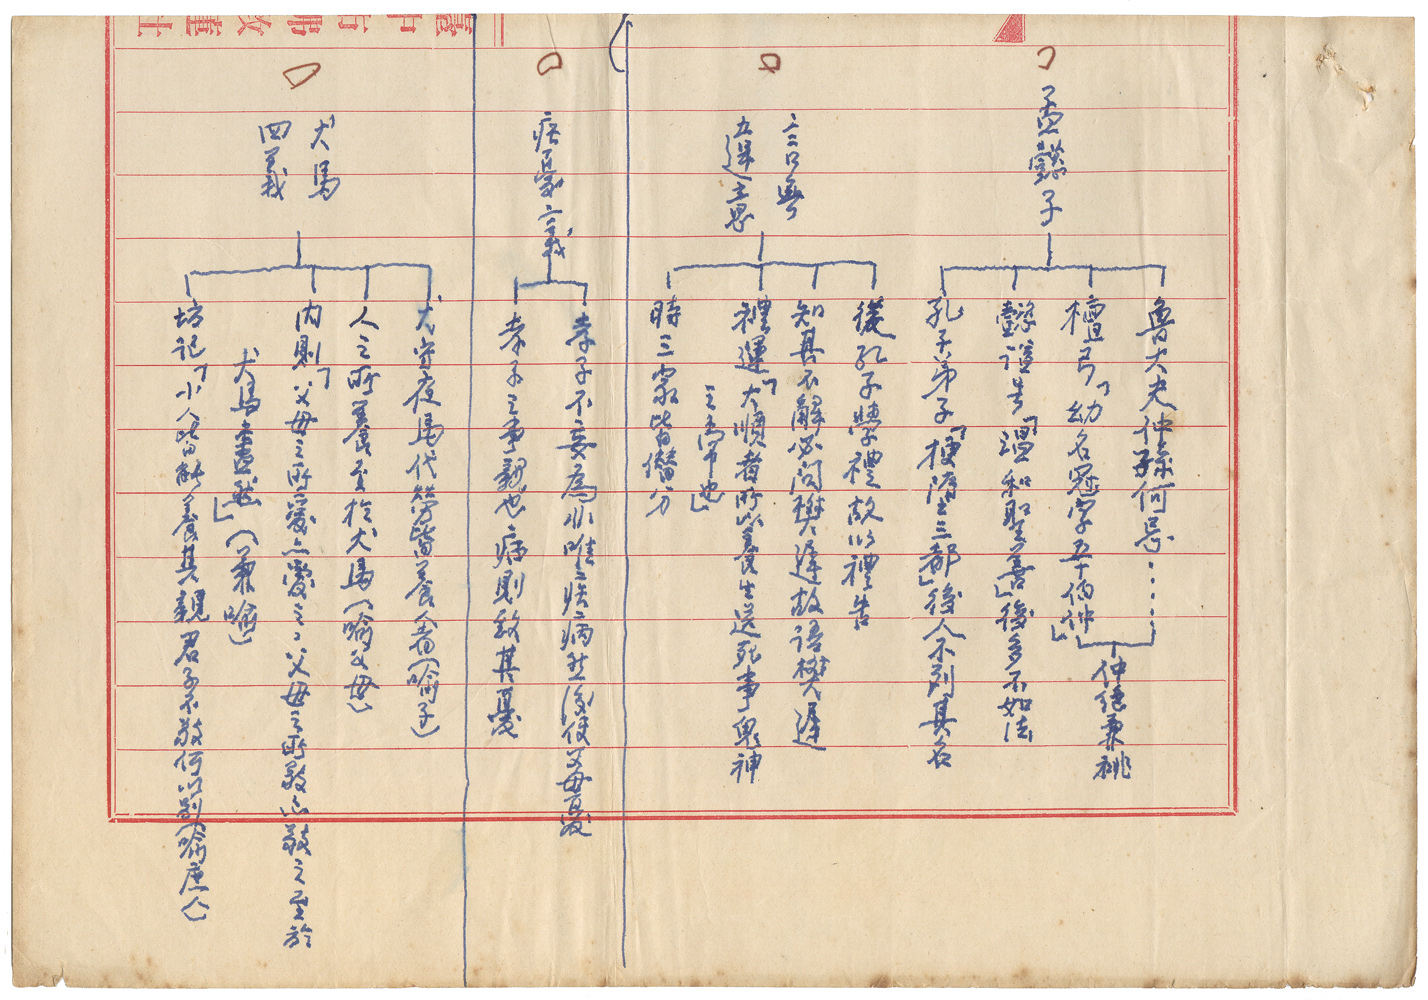 臺中市佛教蓮社
孟懿子
魯大夫仲孫何忌……
檀弓「幼名冠字五十伯仲」
仲德兼祧
懿謚告「溫和聖善」後多不如法
孔子弟子「梗墮三都」後人不列其名
言無
五違意思
從孔子學禮故以禮告
知其不解必問樊遲故語樊遲
禮運「大順者所以養生送死事鬼神
之常也」
時三家皆僭分
疾憂二義
孝子不妄為非唯疾病然後使父母憂
孝子之事親也病則致其憂
犬馬
四義
犬守夜馬代勞皆養人者(喻子)
人之所養至於犬馬(喻父母)
內則「父母之所愛亦愛之父母之所敬亦敬之至於
犬馬盡然」(兼喻)
坊記「小人皆能養其親君子不敬何以別(喻庶人)